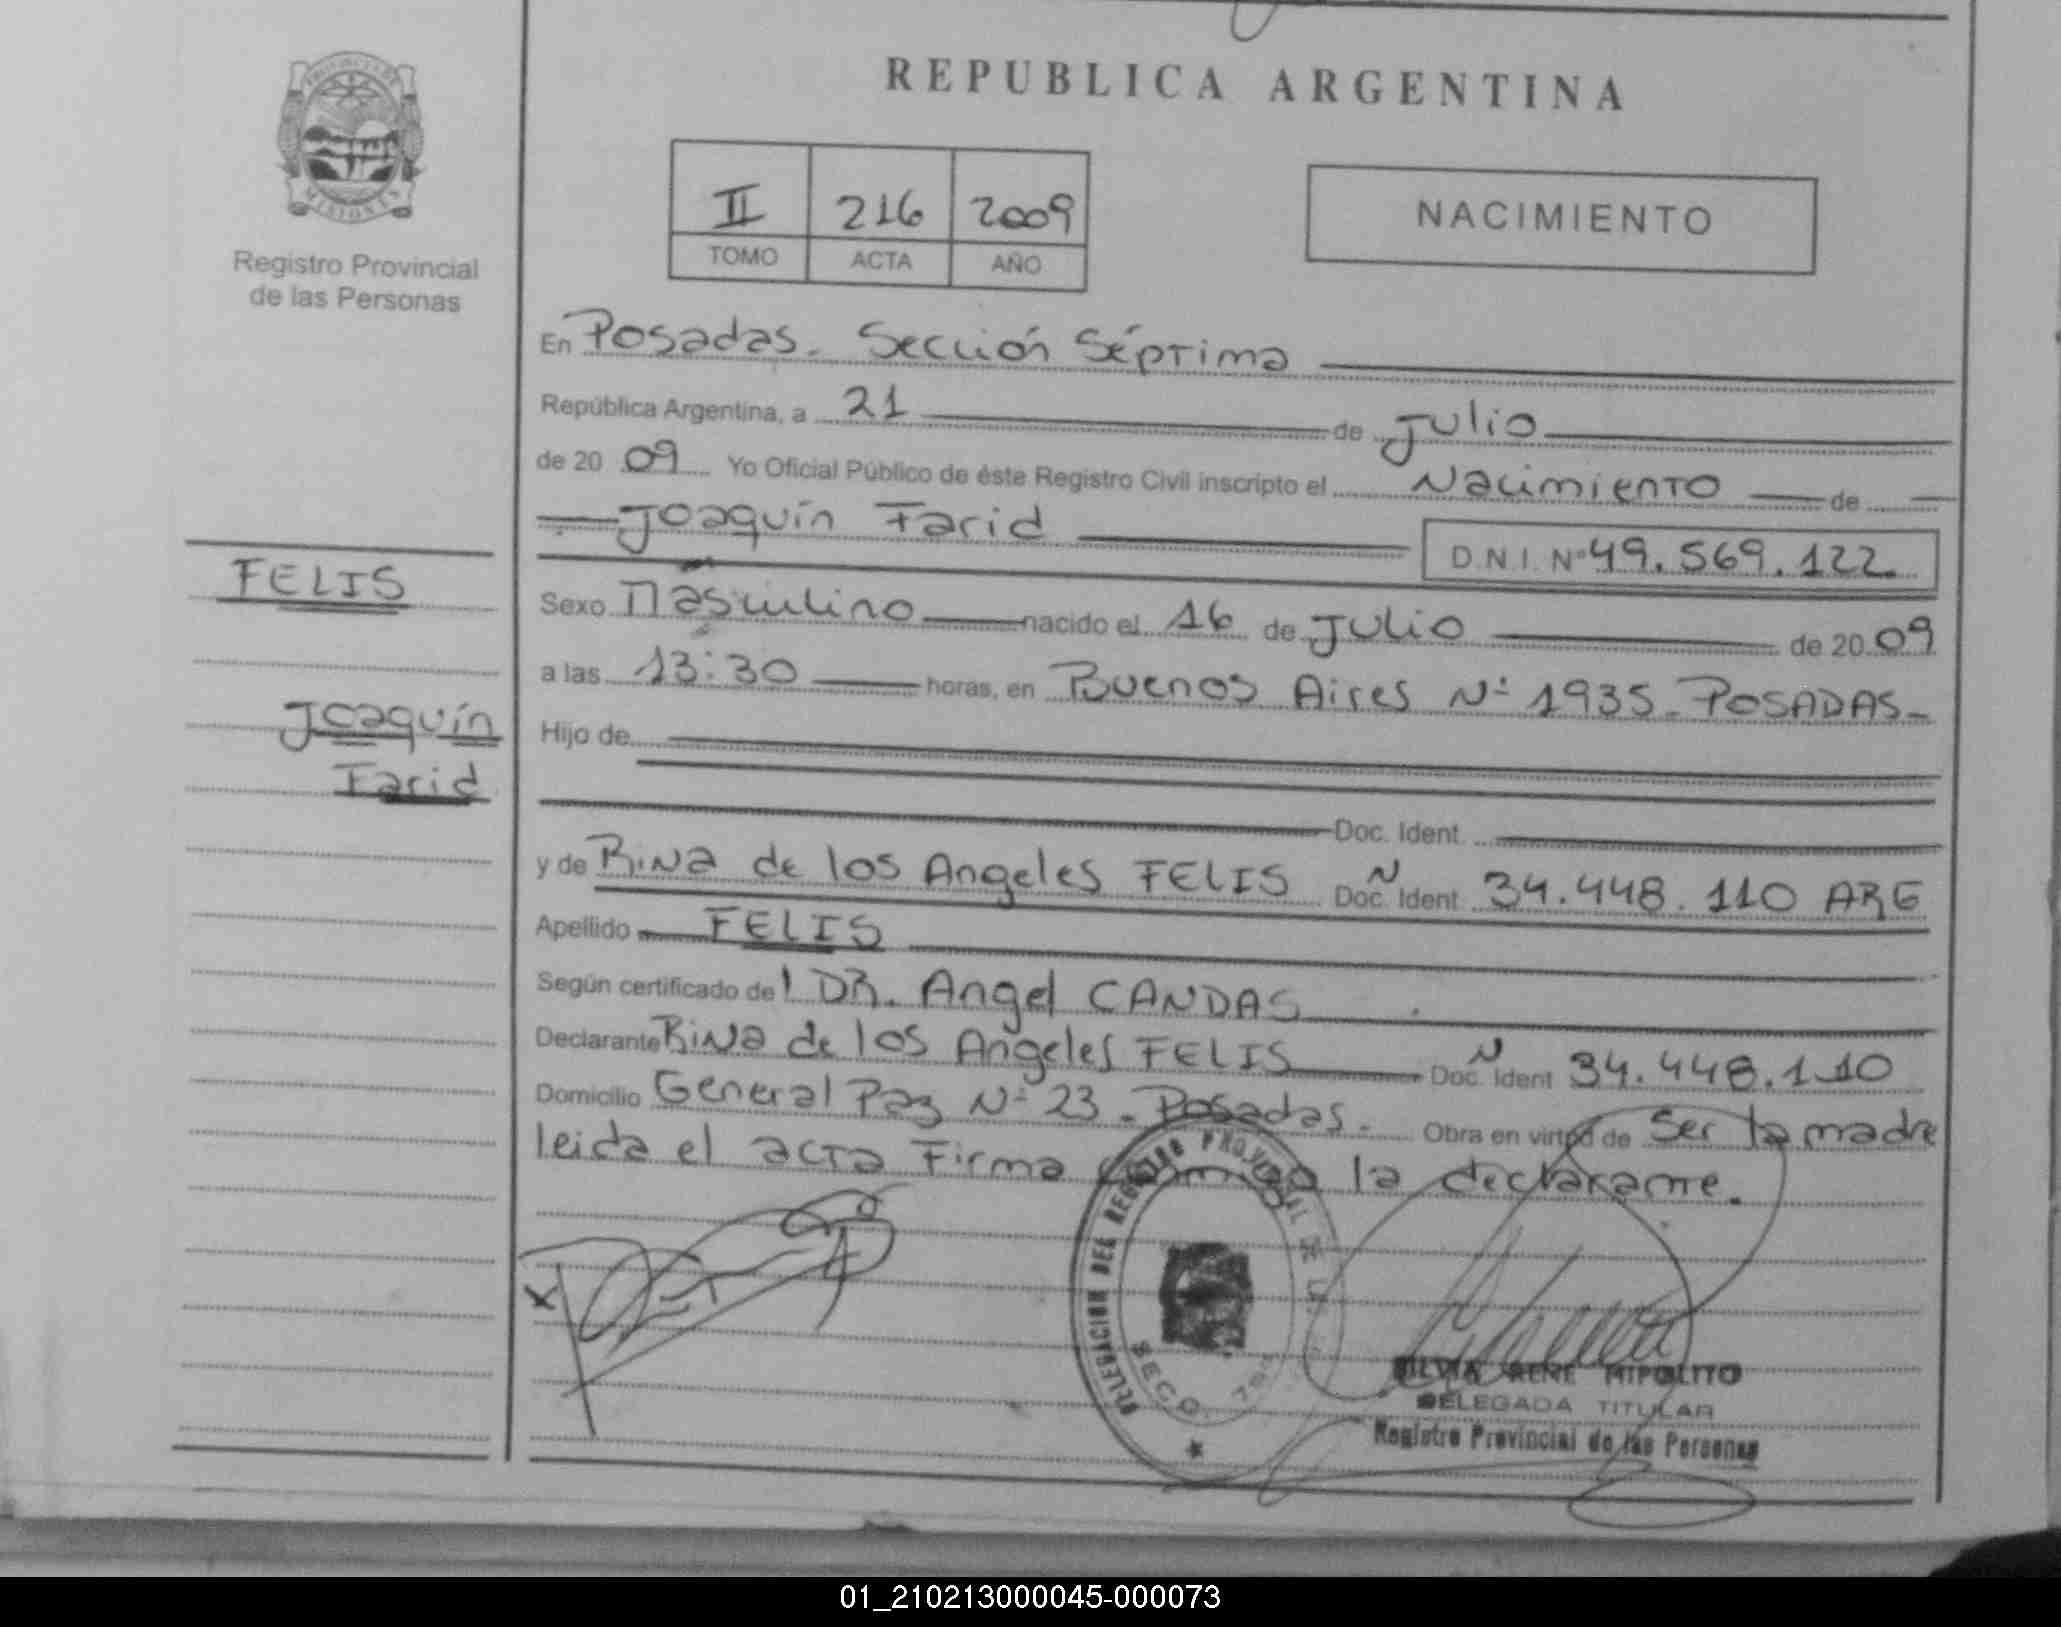 REPUBLICA ARGENTINA
PROVINCIA DE
MISIONES
Registro Provincial
de las Personas
II 216 2009
TOMO ACTA AÑO
NACIMIENTO
En Posadas. Sección Séptima
República Argentina, a 21 de Julio
de 20 09 Yo Oficial Público de éste Registro Civil inscripto el Nacimiento de
Joaquín Farid D.N.I. Nº 49.569.122
FELIS
Joaquín
Farid
Sexo Masculino nacido el 16 de Julio de 20 09
a las 13:30 horas, en Buenos Aires Nº 1935. POSADAS-
Hijo de
Doc. Ident.
y de Rina de los Angeles FELIS Doc. Ident. N 34.448.110 ARG
Apellido FELIS
Según certificado del DR. Angel CANDAS
Declarante Rina de los Angeles FELIS Doc. Ident N 34.448.110
Domicilio General Paz Nº 23 - Posadas. Obra en virtud de Ser la madre
leida el acta Firma conmigo la declarante.
X
DELEGACION DEL REGISTRO PROVINCIAL DE LAS
SECC.
SILVIA RENE HIPOLITO
DELEGADA TITULAR
Registro Provincial de las Personas
01_210213000045-000073